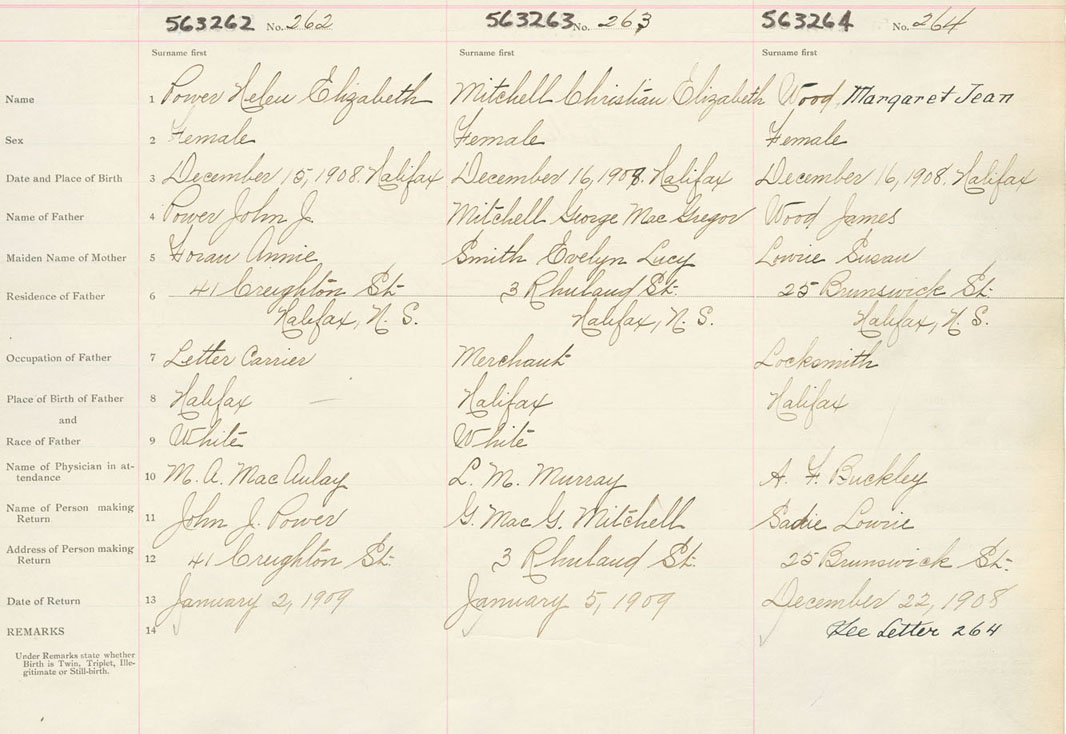 563262 No. 262 563263 No. 263 563264 No. 264
Surname first Surname first Surname first
Name 1 Power Helen Elizabeth Mitchell Christian Elizabeth Wood, Margaret Jean
Sex 2 Female Female Female
Date and Place of Birth 3 December 15, 1908. Halifax December 16, 1908. Halifax December 16, 1908. Halifax
Name of Father 4 Power John J. Mitchell George Mac Gregor Wood James
Maiden Name of Mother 5 Foran Annie Smith Evelyn Lucy Lowrie Susan
Residence of Father 6 41 Creighton St. 3 Rhuland St. 25 Brunswick St.
Halifax, N. S. Halifax, N. S. Halifax, N. S.
Occupation of Father 7 Letter Carrier Merchant Locksmith
Place of Birth of Father 8 Halifax Halifax Halifax
and
Race of Father 9 White White
Name of Physician in at-
tendance 10 M. A. Mac Aulay L. M. Murray A. F. Buckley
Name of Person making
Return 11 John J. Power G. Mac G. Mitchell Sadie Lowrie
Address of Person making
Return 12 41 Creighton St. 3 Rhuland St. 25 Brunswick St.
Date of Return 13 January 2, 1909 January 5, 1909 December 22, 1908
REMARKS 14 See Letter 264
Under Remarks state whether
Birth is Twin, Triplet, Ille-
gitimate or Still-birth.